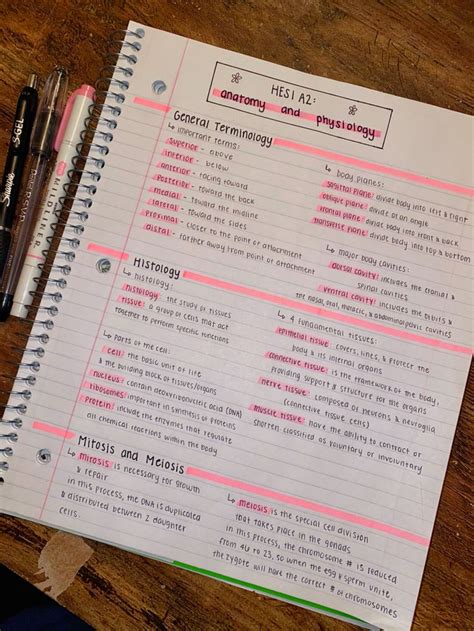 HESI A2:
anatomy and physiology
General Terminology
↳ important terms:
superior - above
inferior - below
anterior - facing toward
posterior - toward the back
medial - toward the midline
lateral - toward the sides
proximal - closer to the point of attachment
distal - farther away from point of attachment
↳ body planes:
sagittal plane: divide body into left & right
oblique plane: divide at an angle
frontal plane: divide body into front & back
transverse plane: divide body into top & bottom
↳ major body cavities:
dorsal cavity: includes the cranial &
spinal cavities
ventral cavity: includes the orbits &
the nasal, oral, thoracic, & abdominal pelvic cavities
Histology
↳ histology:
histology: the study of tissues
tissue: a group of cells that act
together to perform specific functions
↳ parts of the cell:
cell: the basic unit of life
& the building block of tissues/organs
nucleus: contain deoxyribonucleic acid (DNA)
ribosomes: important in synthesis of proteins
protein: include the enzymes that regulate
all chemical reactions within the body
↳ 4 fundamental tissues:
epithelial tissue: covers, lines, & protect the
body & its internal organs
connective tissue: is the framework of the body,
providing support & structure for the organs
nerve tissue: composed of neurons & neuroglia
(connective tissue cells)
muscle tissue: have the ability to contract or
shorten. classified as voluntary or involuntary
Mitosis and Meiosis
↳ mitosis: is necessary for growth
& repair
in this process, the DNA is duplicated
& distributed between 2 daughter
cells.
↳ meiosis: is the special cell division
that takes place in the gonads
in this process, the chromosome # is reduced
from 46 to 23, so when the egg & sperm unite,
the zygote will have the correct # of chromosomes
Sharpie S-GEL
MILDLINER